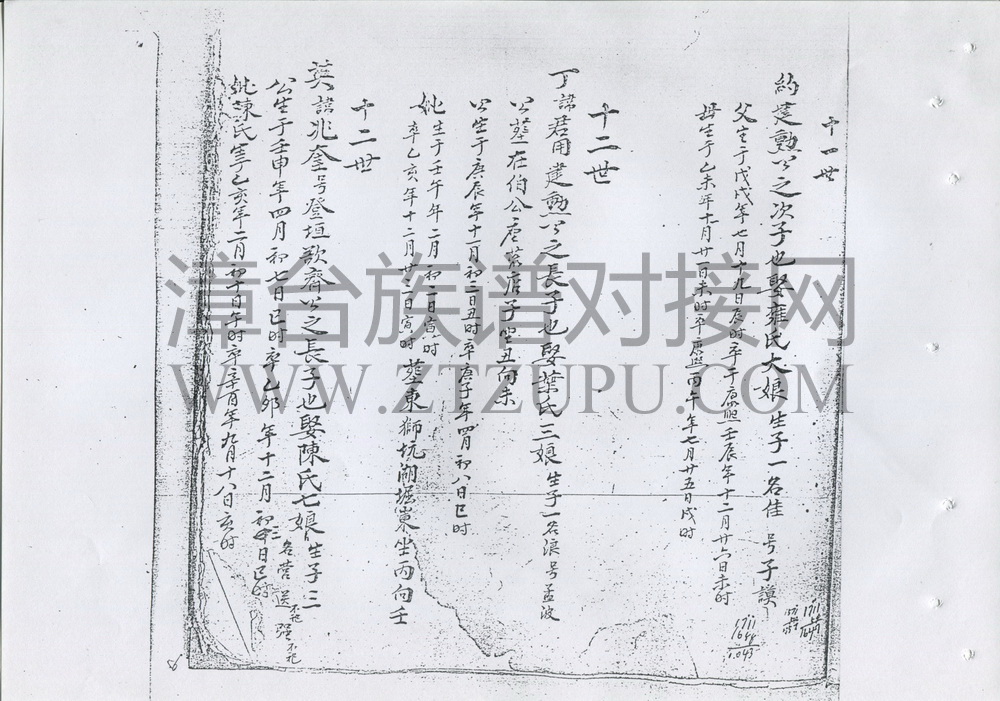 十四世
約建勲公之次子也娶雍氏大娘生子一名佳 号子謨
父生于戊戌年七月十九日辰时卒于康熙壬辰年十二月廿六日未时
母生于乙未年十月廿一日未时卒康熙丙午年七月廿五日戌时
十二世
丁諱君用建勲公之長子也娶葉氏三娘生子一名浪号孟波
公塟在伯公唐崇唐子坐丑向未
公生于庚辰年十一月初二日丑时卒庚子年四月初八日巳时
妣生于壬午年二月初二日寅时
卒乙亥年十二月廿二日寅时塟東獅坑湖堀東坐丙向壬
十二世
諱兆奎号登垣歌齊公之長子也娶陳氏七娘生子三名营送强
公生于壬申年四月初七日巳时卒乙卯年十二月初三日巳时
妣陳氏乙亥年二月初十日午时卒年九月十八日亥时
漳台族谱对接网
WWW.ZTZUPU.COM
1711
1711